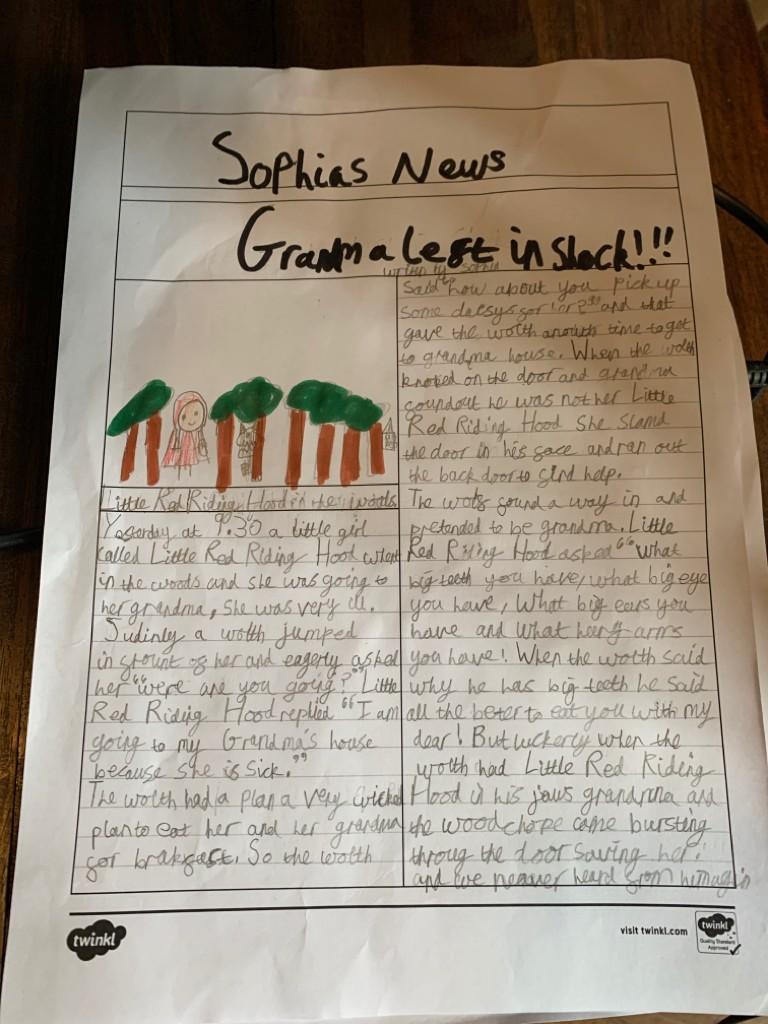 Sophias News
Granma left in shock!!!
written by Sophia
Little Red Riding Hood in the woods
Yesterday at 9.30 a little girl
called Little Red Riding Hood whent
in the woods and she was going to
her grandma, She was very ill.
Sudinly a wolth jumped
in frount of her and eagerly asked
her “were are you going?” Little
Red Riding Hood replied “I am
going to my Grandma's house
because she is sick.”
The wolth had a plan a very wicked
plan to eat her and her grandma
for brakfast. So the wolth
Said “how about you pick up
some daesys for and that
gave the wolth anouth time to get
to grandma house. When the wolth
knoked on the door and grandma
foundout he was not her Little
Red Riding Hood She slamd
the door in his face and ran out
the back door to find help.
The wolf found a way in and
pretended to be grandma. Little
Red Riding Hood asked “what
big teeth you have, what big eye
you have, What big ears you
have and what arms
you have! When the wolth said
why he has big teeth he said
all the beter to eat you with my
dear! But luckerly when the
wolth had Little Red Riding
Hood in his jaws grandma and
the woodchope came bursting
throug the door saving her.
and we neaver heard from himagin
twinkl
visit twinkl.com
twinkl
Quality Standard
Approved